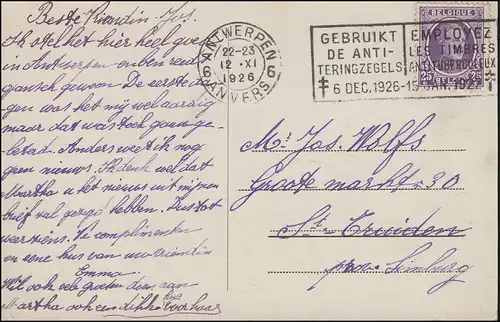 Beste Vriendin Jos.
Ik stel het hier heel goed
in Antwerpen en ben reeds
gansch gewoon. De eerste da
gen was het mij wel aardig
maar dat was toch gauw ge-
leden. Anders weet ik nog
geen nieuws. Ik denk wel dat
Martha u het nieuws uit mijnen
brief zal gezegd hebben.
Vele complimenten
en eene kus van uw vriendin
Emma
Wil ook vele groeten doen aan
Martha ook een dikke kus voor haar
ANTWERPEN 6
22-23
12 · XI
1926
6 ANVERS
GEBRUIKT
DE ANTI-
TERINGZEGELS
EMPLOYEZ
LES TIMBRES
ANTITUBERCULEUX
6 DEC. 1926-15 JAN. 1927
BELGIQUE
25 25
Mr Jos. Wolfs
Groote markt 30
St Truiden
prov. Limburg